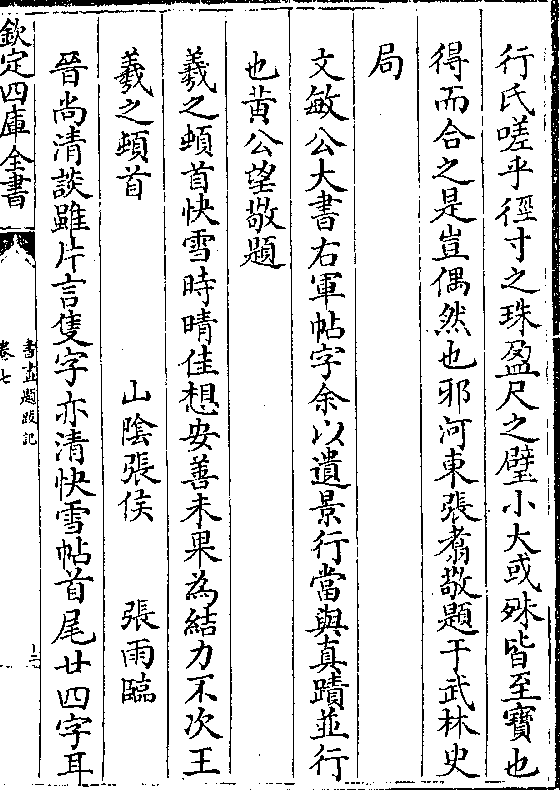 行氏嗟乎徑寸之珠盈尺之璧小大或殊皆至寶也
得而合之是豈偶然也邪河東張翥敬題于武林史
局
文敏公大書右軍帖字余以遺景行當與真蹟並行
也黄公望敬題
羲之頓首快雪時晴佳想安善未果為結力不次王
羲之頓首　山陰張侯　張雨臨
晉尚清談雖片言隻字亦清快雪帖首尾廿四字耳
欽定四庫全書
書畫題跋記
卷七